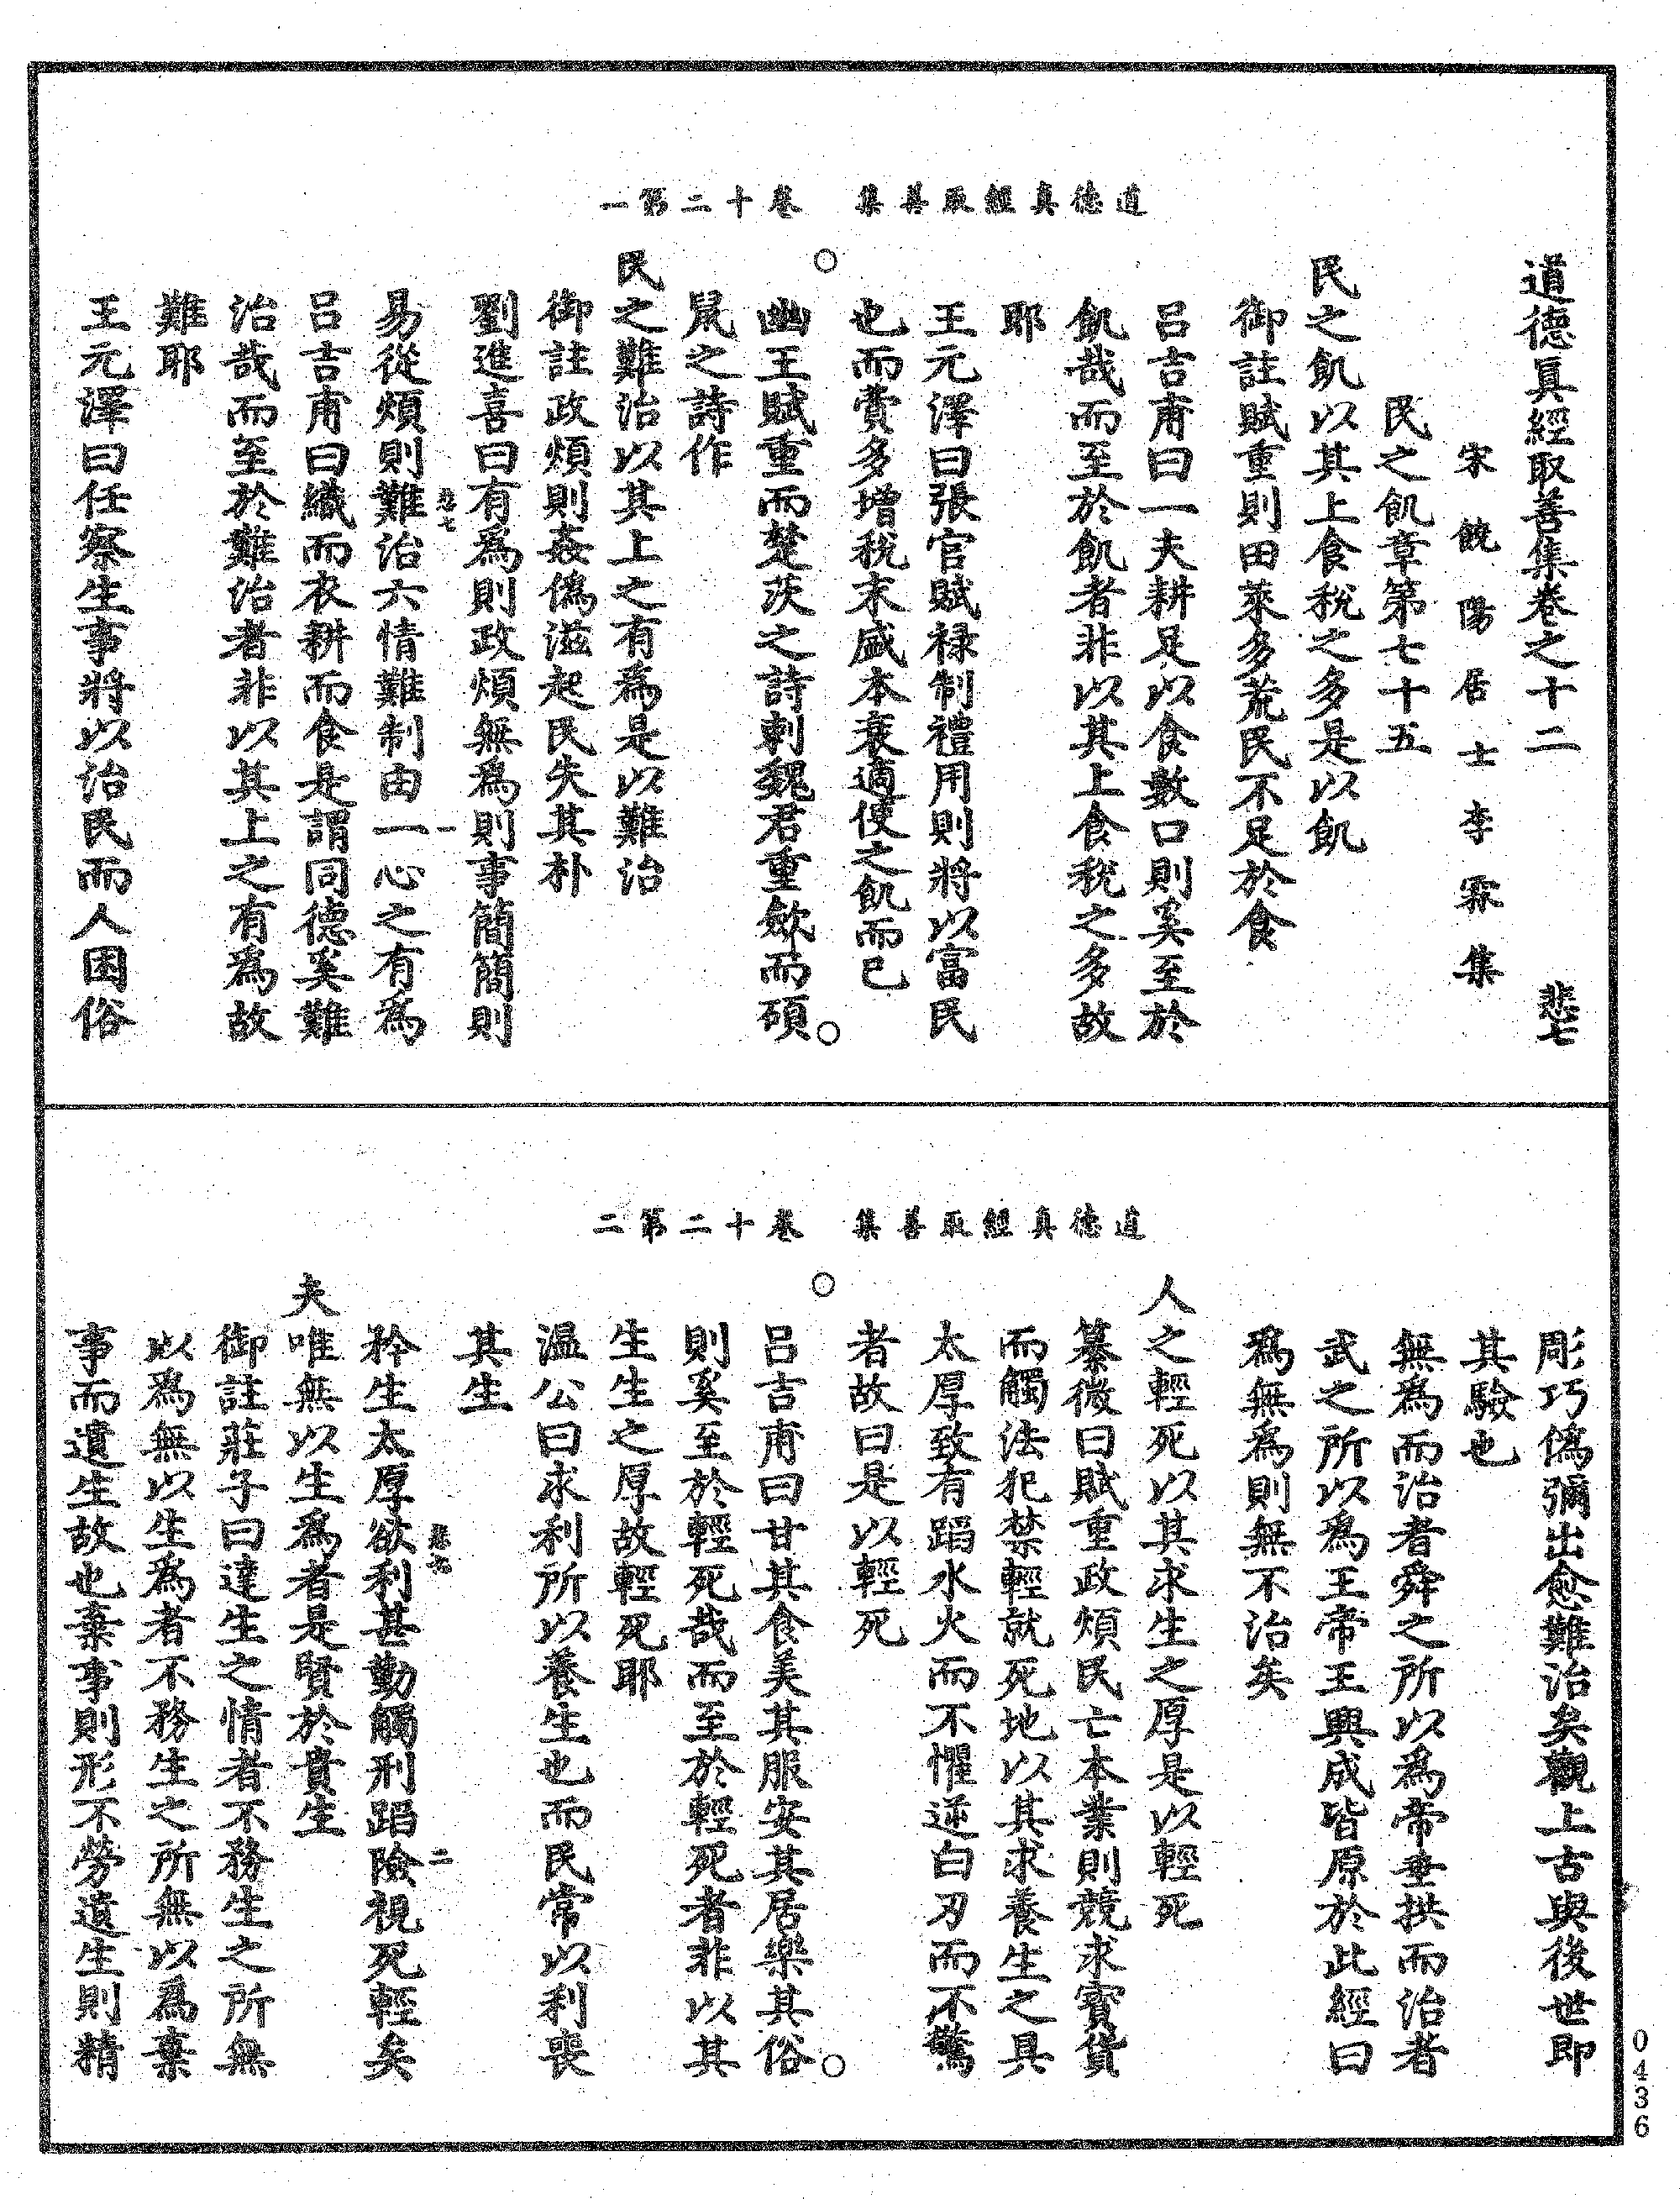 道德真經取善集　卷十二第一
道德真經取善集卷之十二　悲七
宋饒陽居士李霖集
民之飢章第七十五
民之飢以其上食稅之多是以飢
御註賦重則田萊多荒民不足於食
呂吉甫曰一夫耕足以食數口則奚至於
飢哉而至於飢者非以其上食稅之多故
耶
王元澤曰張官賦祿制禮用則將以富民
也而費多增稅末盛本衰適使之飢而已
幽王賦重而楚茨之詩刺魏君重歛而碩
鼠之詩作
民之難治以其上之有為是以難治
御註政煩則姦僞滋起民失其朴
劉進喜曰有為則政煩無為則事簡簡則
易從煩則難治六情難制由一心之有為
悲七　一
呂吉甫曰織而衣耕而食是謂同德奚難
治哉而至於難治者非以其上之有為故
難耶
王元澤曰任察生事將以治民而人困俗
道德真經取善集　卷十二第二
彫巧僞彌出愈難治矣觀上古與後世即
其驗也
無為而治者舜之所以為帝垂拱而治者
武之所以為王帝王興成皆原於此經曰
為無為則無不治矣
人之輕死以其求生之厚是以輕死
纂微曰賦重政煩民亡本業則競求寶貨
而觸法犯禁輕就死地以其求養生之具
太厚致有蹈水火而不懼逆白刃而不驚
者故曰是以輕死
呂吉甫曰甘其食美其服安其居樂其俗
則奚至於輕死哉而至於輕死者非以其
生生之厚故輕死耶
温公曰求利所以養生也而民常以利喪
其生
矜生太厚欲利甚勤觸刑蹈險視死輕矣
悲七　二
夫唯無以生為者是賢於貴生
御註莊子曰達生之情者不務生之所無
以為無以生為者不務生之所無以為棄
事而遺生故也棄事則形不勞遺生則精
0436